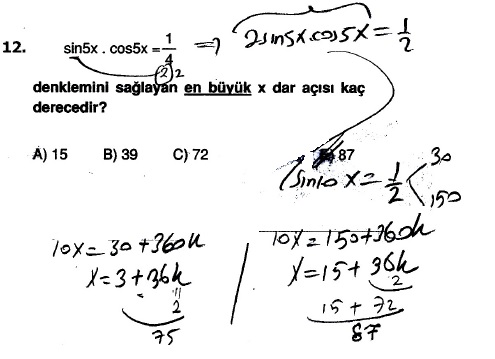 12. sin5x . cos5x = 1/4 ⇒ 2sin5x.cos5x = 1/2
2 2
denklemini sağlayan en büyük x dar açısı kaç
derecedir?
A) 15 B) 39 C) 72 87
sin10x = 1/2 30
150
10x = 30 + 360k
x = 3 + 36k
2
75
10x = 150 + 360k
x = 15 + 36k
2
15 + 72
87